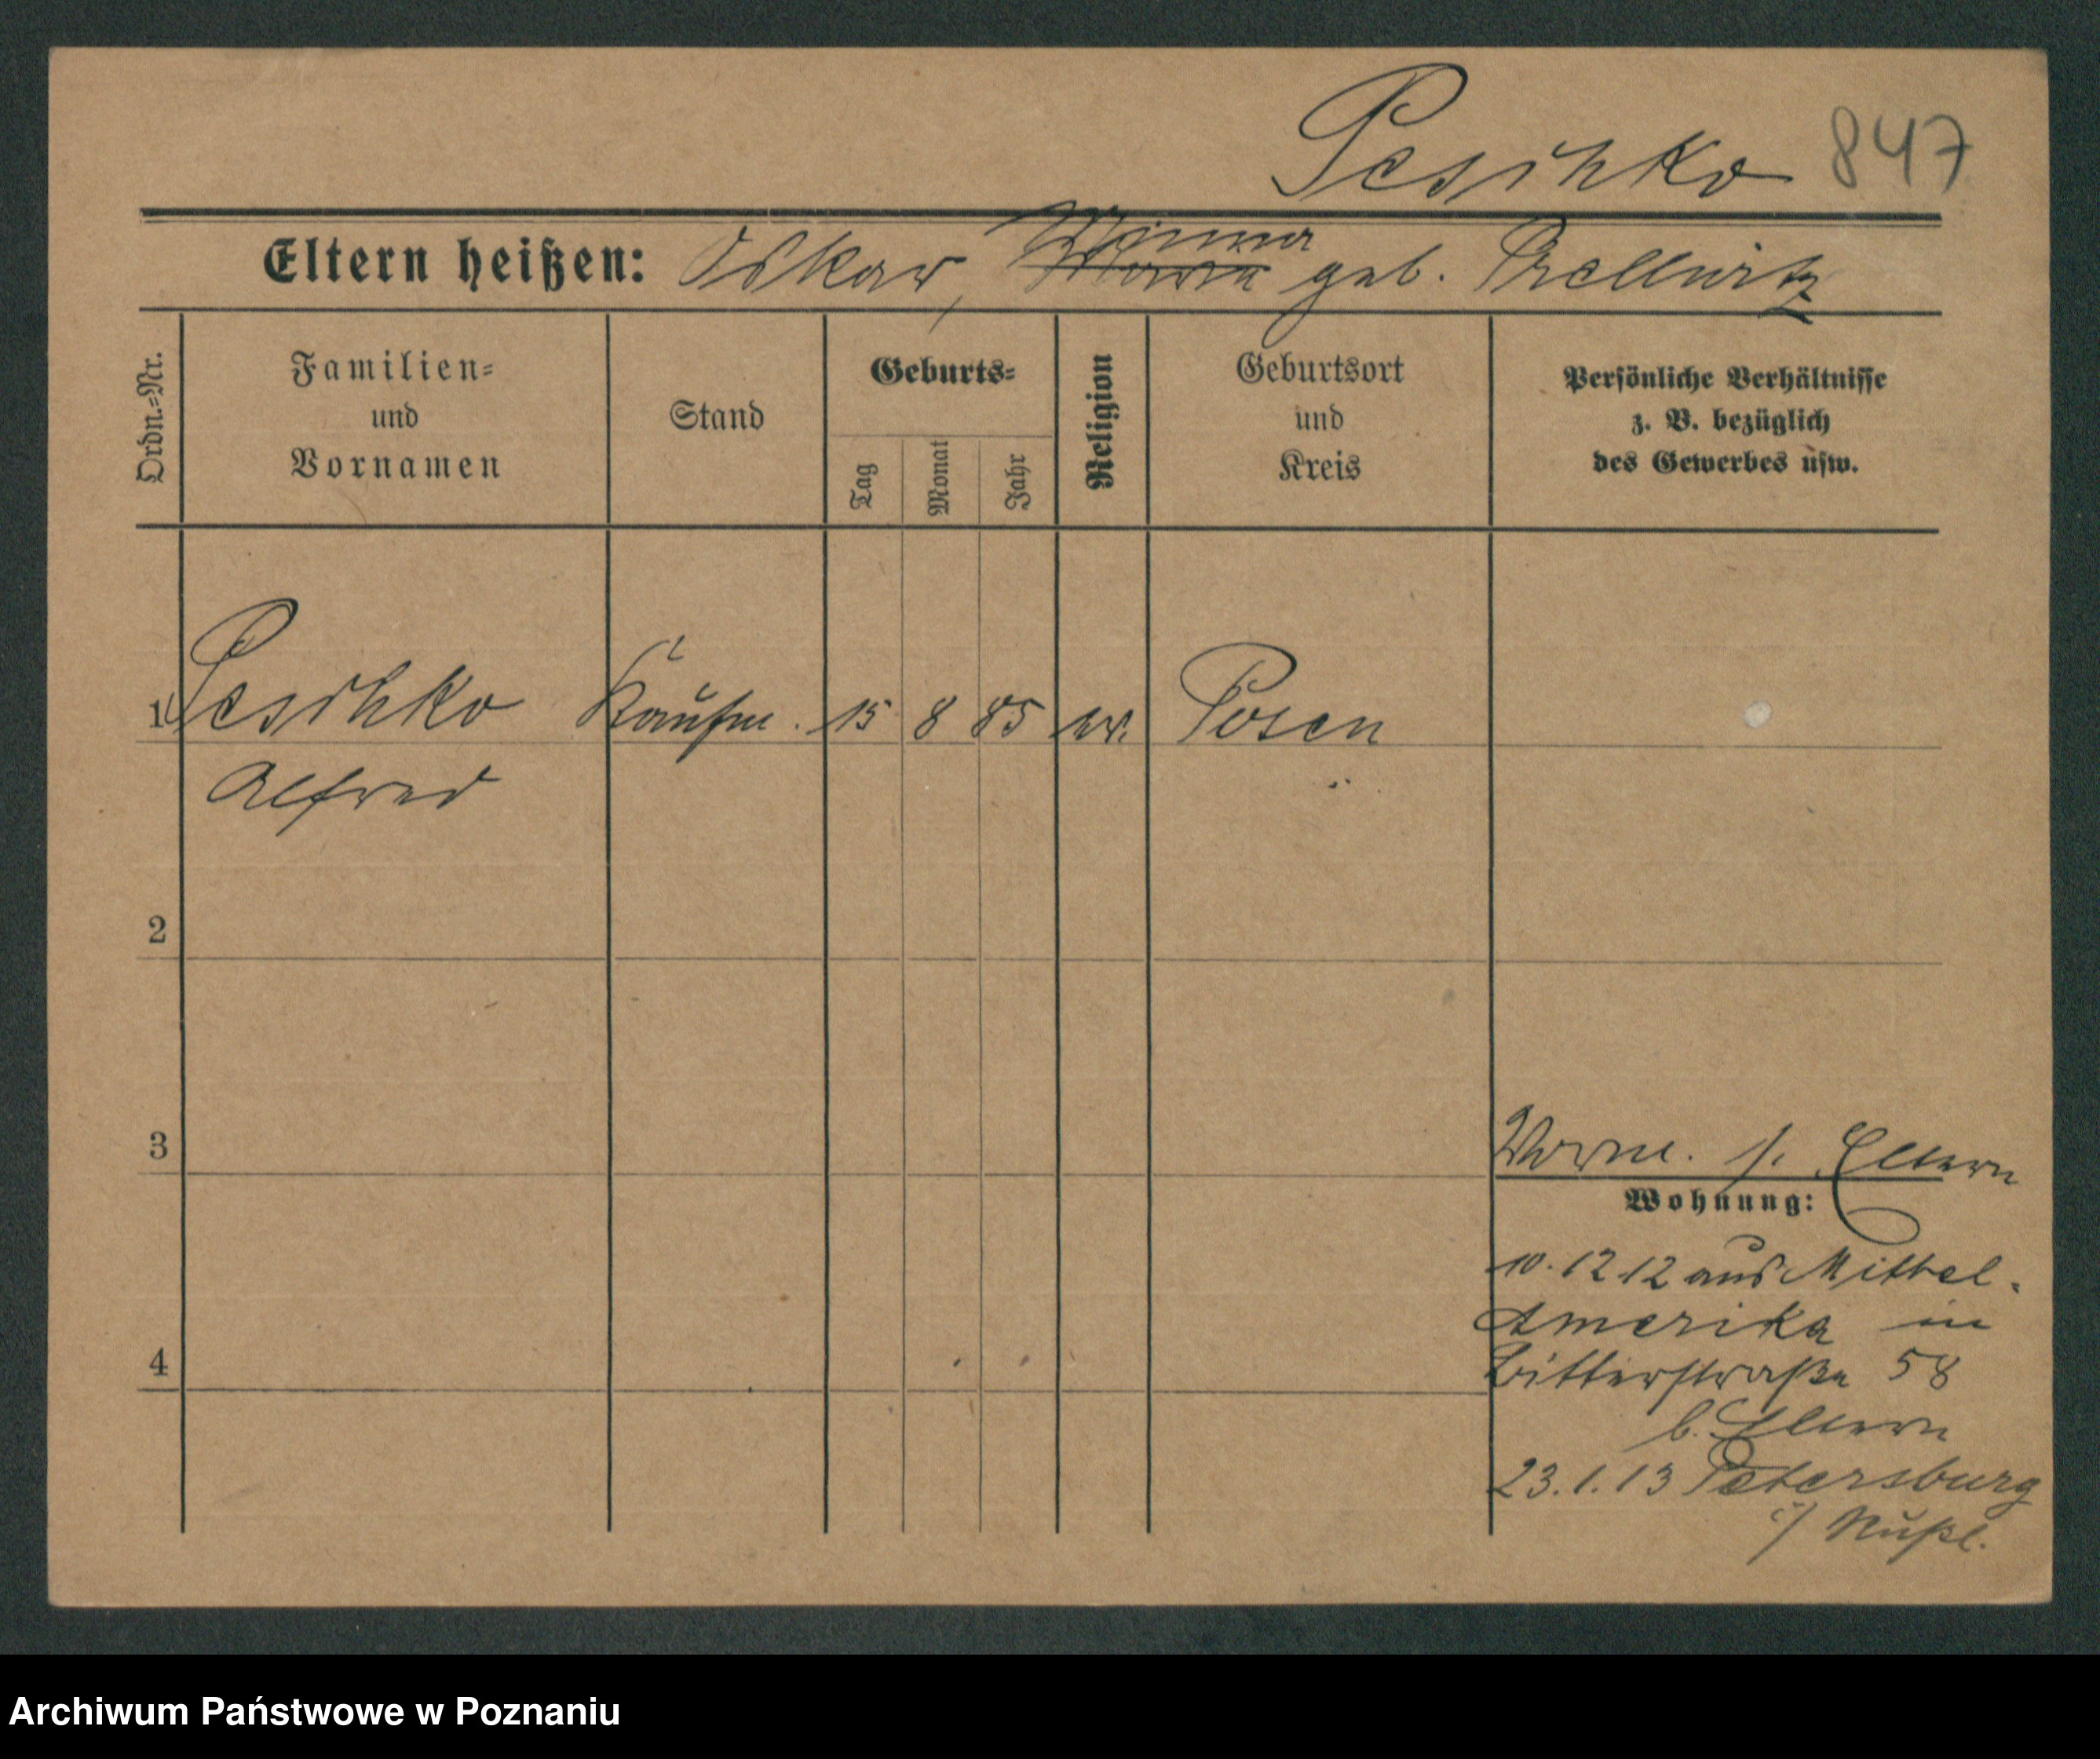 Peschko 847
Eltern heißen: Oskar, Minna geb. Prellwitz
Ordn.-Nr.
Familien-
und
Vornamen
Stand
Geburts-
Tag
Monat
Jahr
Religion
Geburtsort
und
Kreis
Persönliche Verhältnisse
z. B. bezüglich
des Gewerbes usw.
1 Peschko Kaufm. 15 8 85 ev. Posen
Alfred
2
3
Vorm. s. Eltern
Wohnung:
10.12.12 aus Mittel-
Amerika in
Ritterstraße 58
b. Eltern
4
23.1.13 Petersburg
i/ Rußl.
Archiwum Państwowe w Poznaniu